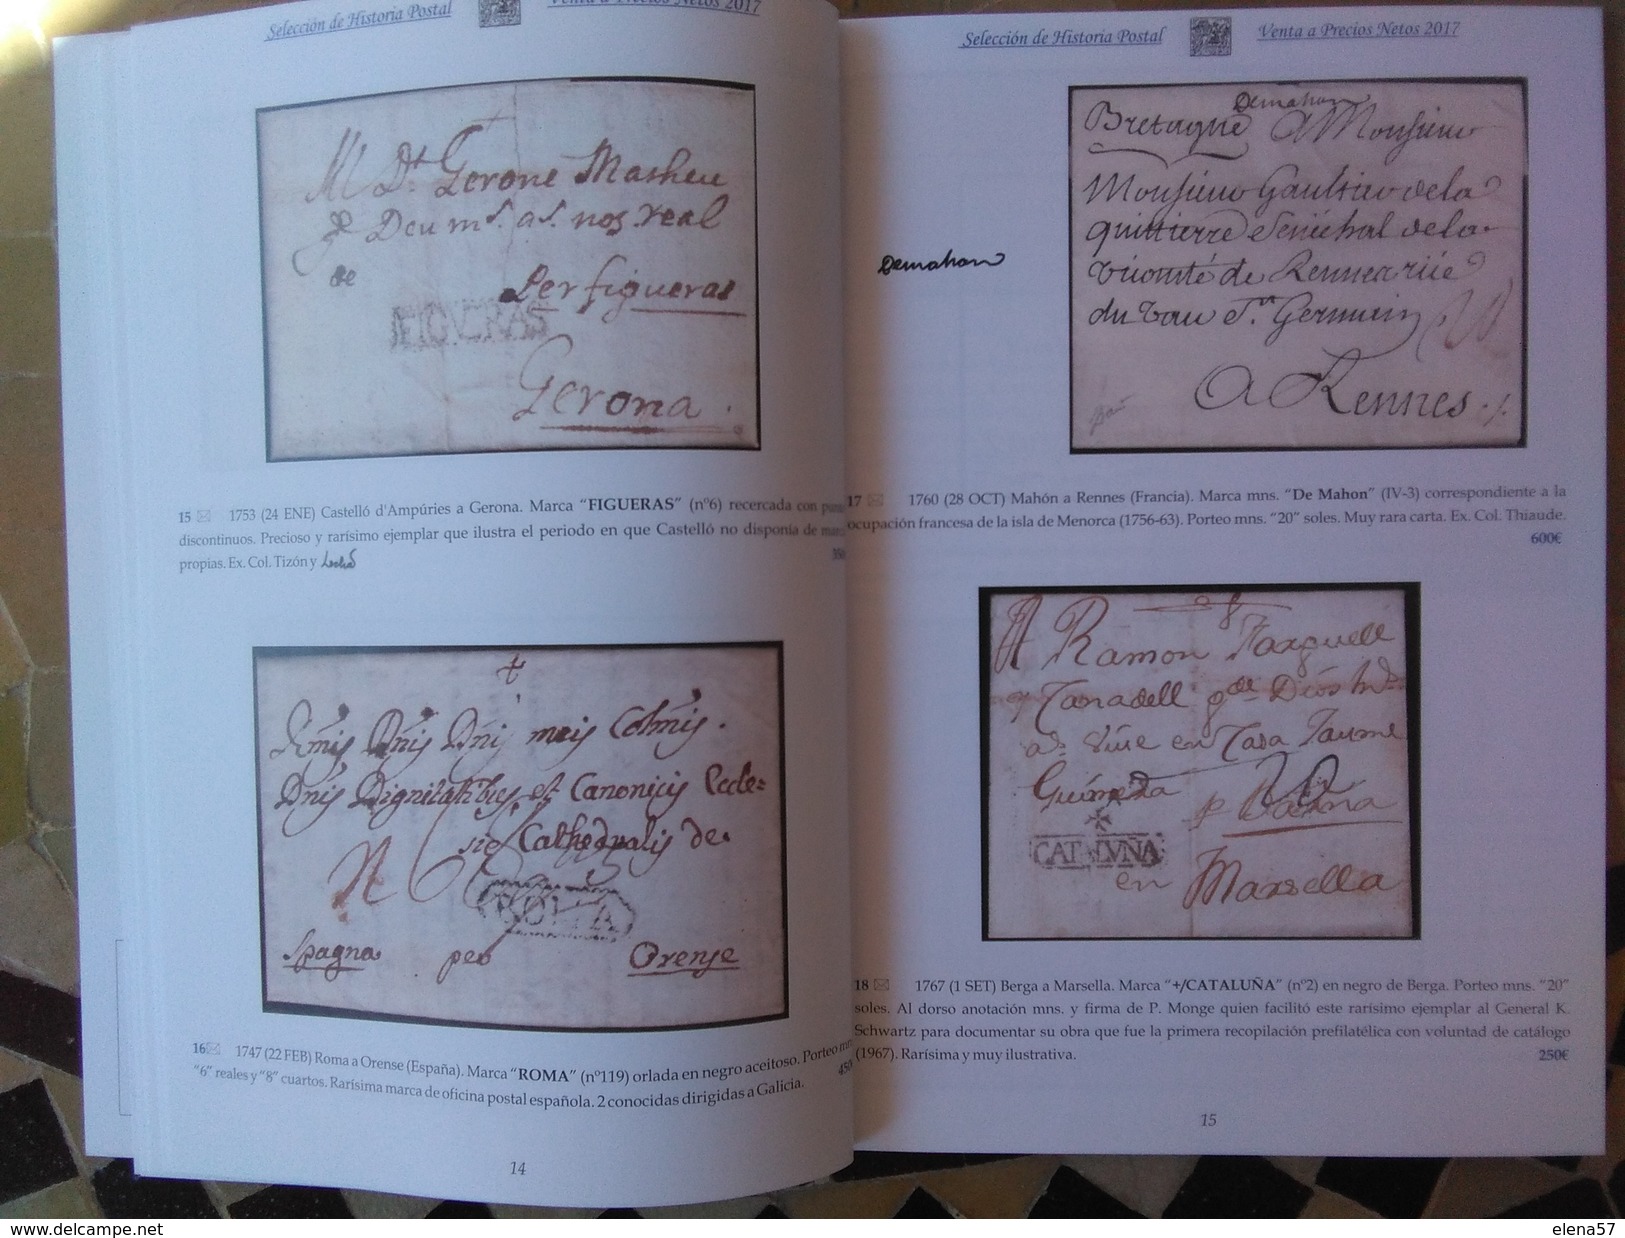 Selección de Historia Postal
Venta a Precios Netos 2017
Gerone
nos real
de
Per figueras
FIGUERAS
Gerona
15 1753 (24 ENE) Castelló d'Ampúries a Gerona. Marca "FIGUERAS" (nº6) recercada con
discontinuos. Precioso y rarísimo ejemplar que ilustra el periodo en que Castelló no disponía de
propias. Ex. Col. Tizón y
350
Dignitatibus et Canonicis Eccle=
sie Cathedralis de
ROMA
Spagna per Orense
16 1747 (22 FEB) Roma a Orense (España). Marca "ROMA" (nº119) orlada en negro aceitoso. Porteo mn
"6" reales y "8" cuartos. Rarísima marca de oficina postal española. 2 conocidas dirigidas a Galicia.
450
14
Selección de Historia Postal
Venta a Precios Netos 2017
Demahon
Bretagne A Monsieur
Monsieur Gaultier de la
quittierre Senéchal de la
vicomté de Rennes rüe
du St. Germain
A Rennes
Demahon
17 1760 (28 OCT) Mahón a Rennes (Francia). Marca mns. "De Mahon" (IV-3) correspondiente a la
ocupación francesa de la isla de Menorca (1756-63). Porteo mns. "20" soles. Muy rara carta. Ex. Col. Thiaude.
600€
A Ramon
en Casa Jaume
20
CATALUÑA
en Marsella
18 1767 (1 SET) Berga a Marsella. Marca "+/CATALUÑA" (nº2) en negro de Berga. Porteo mns. "20"
soles. Al dorso anotación mns. y firma de P. Monge quien facilitó este rarísimo ejemplar al General K.
Schwartz para documentar su obra que fue la primera recopilación prefilatélica con voluntad de catálogo
(1967). Rarísima y muy ilustrativa.
250€
15
www.delcampe.net
elena57